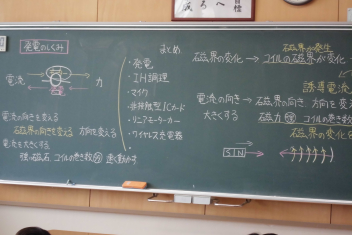 発電のしくみ
電流
力
電流の向きを変える
磁界の向きを変える 方向を変える
電流を大きくする
強い磁石 コイルの巻き数 速く動かす
まとめ
・発電
・IH調理
・マイク
・非接触型ICカード
・リニアモーターカー
・ワイヤレス充電器
磁界が発生
磁界の変化 → コイルの磁界が変化
誘導電流
電流の向き → 磁界の向き 方向を変
大きくする 磁力 コイルの巻き数
磁界の変化を
SIN